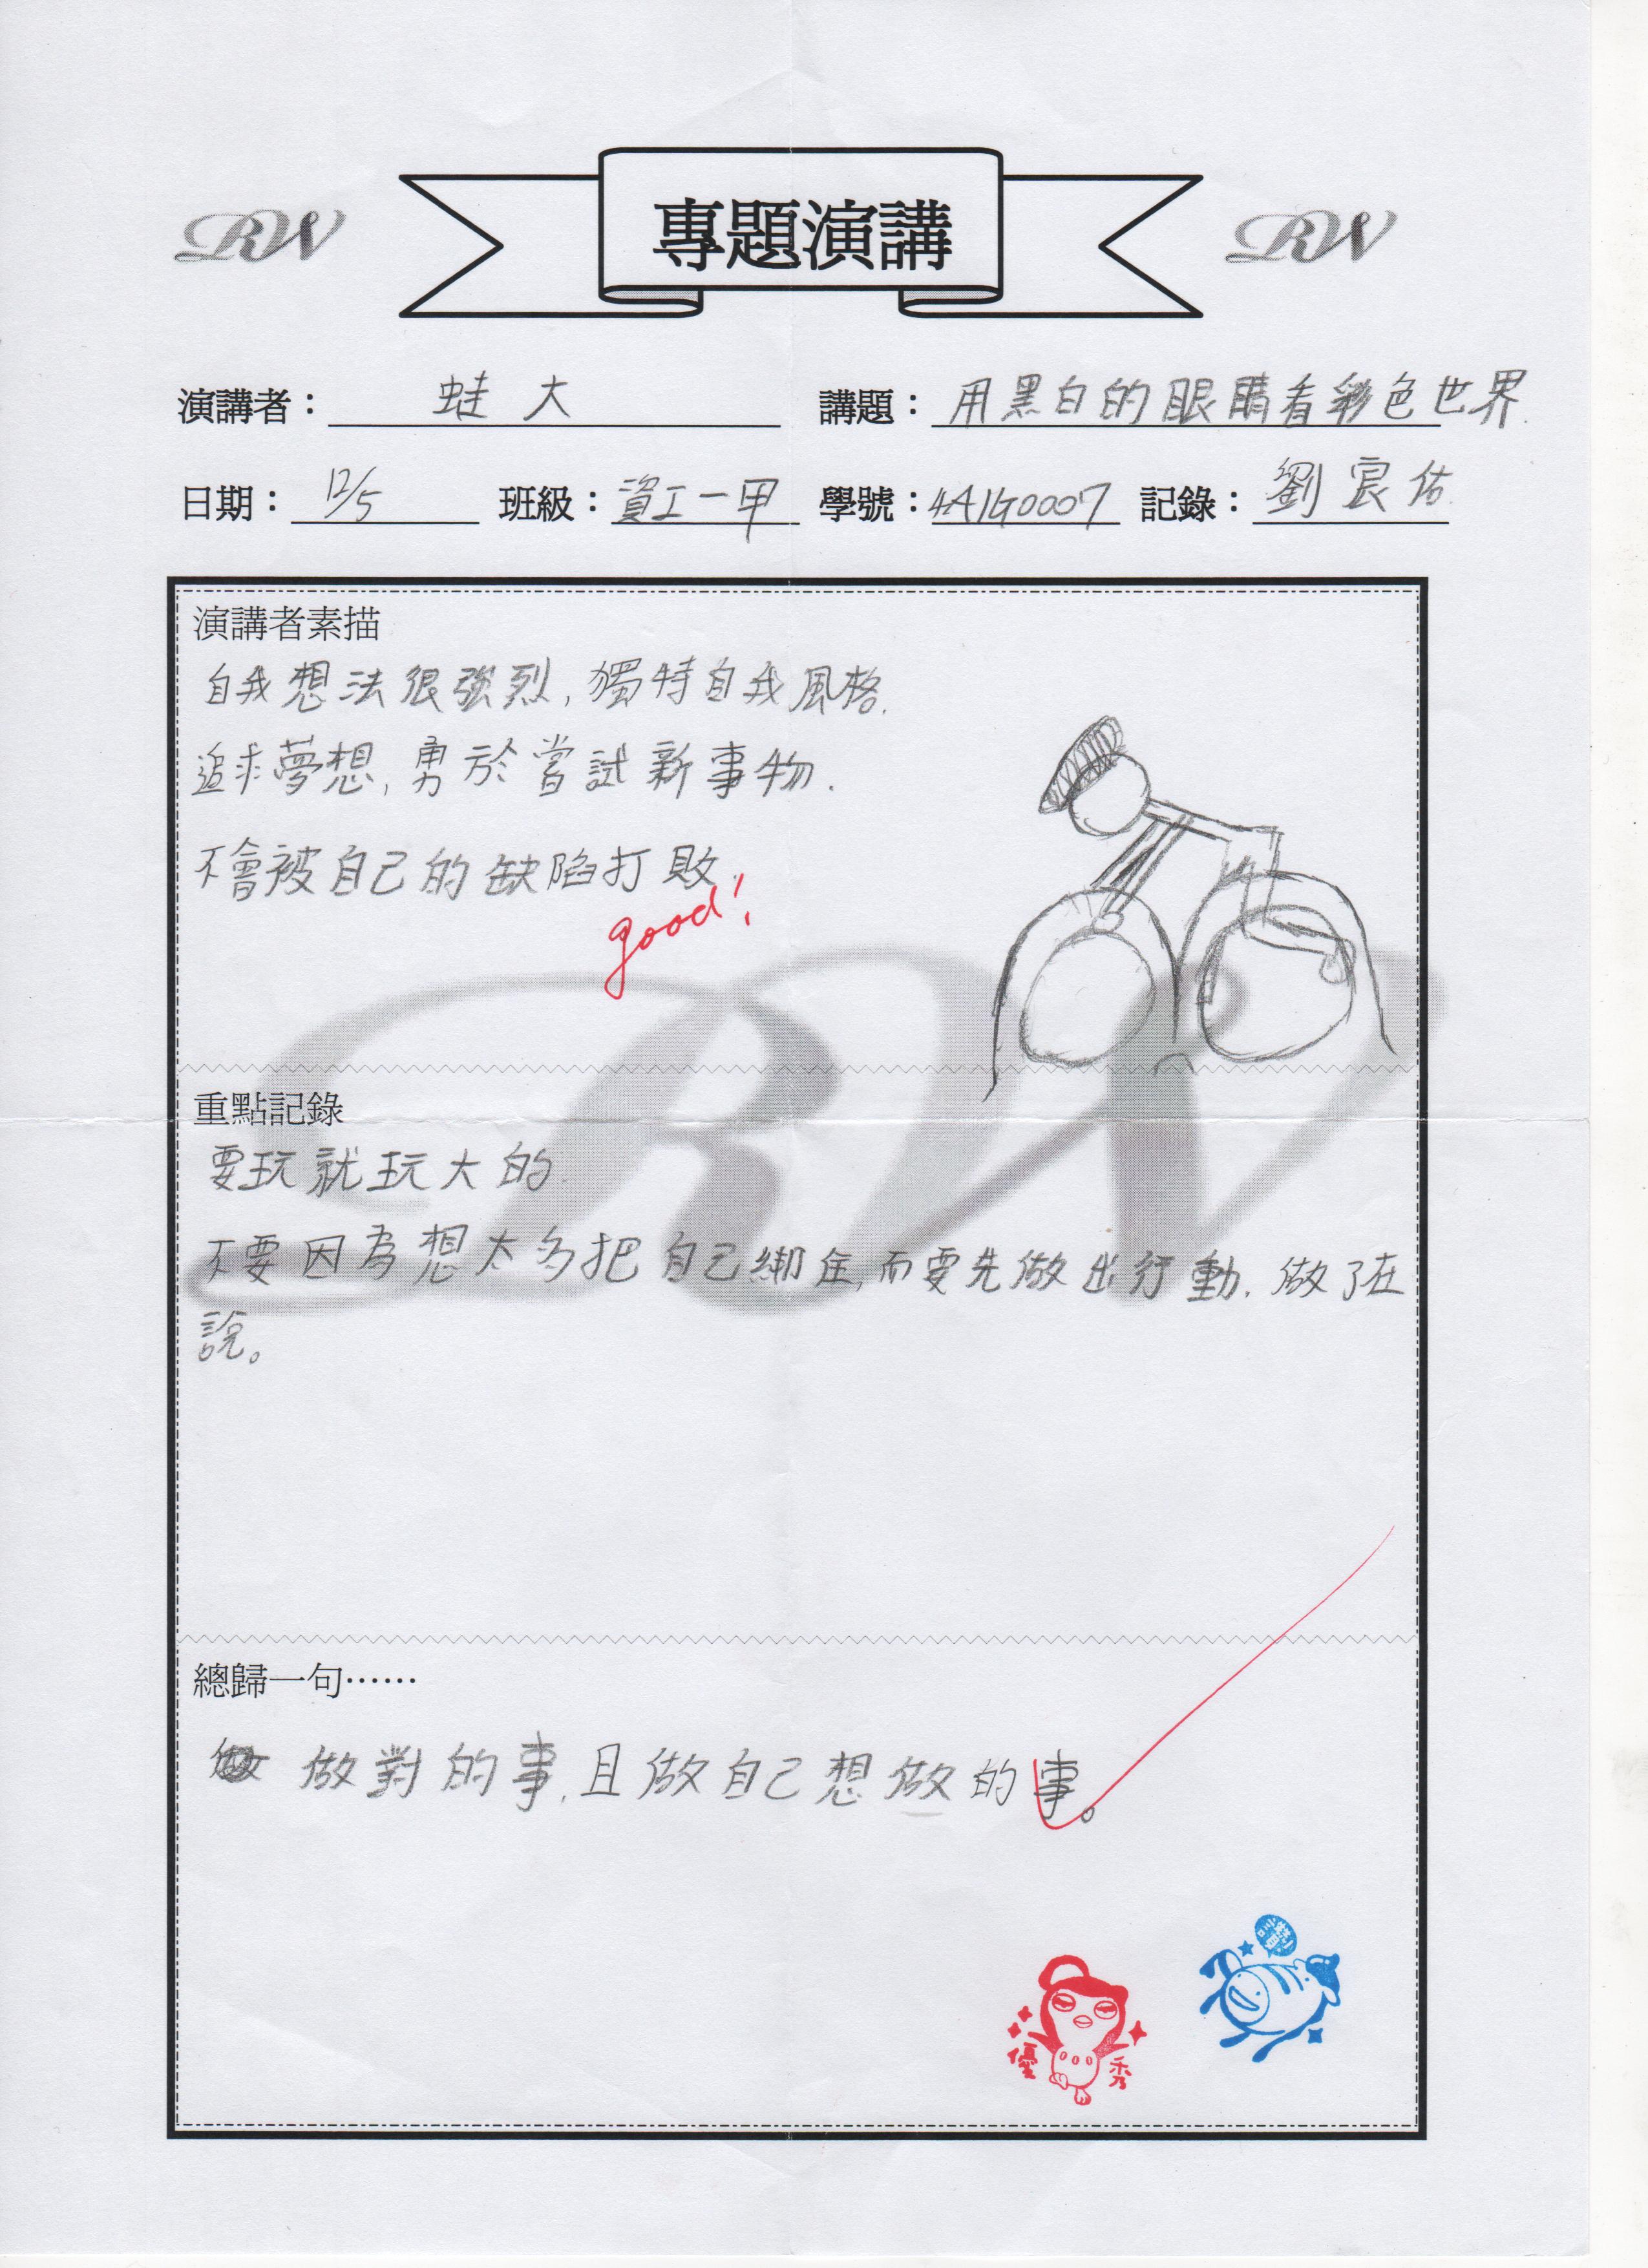 RW 專題演講 RW
演講者： 蛙大 講題： 用黑白的眼睛看彩色世界.
日期： 12/5 班級： 資工一甲 學號： 4A1G0007 記錄： 劉宸佑.
演講者素描
自我想法很強烈, 獨特自我風格.
追求夢想, 勇於嘗試新事物.
不會被自己的缺陷打敗.
good!
RW
重點記錄
要玩就玩大的.
不要因為想太多把自己綁住, 而要先做出行動. 做了在
說。
總歸一句……
做對的事, 且做自己想做的事。
優秀